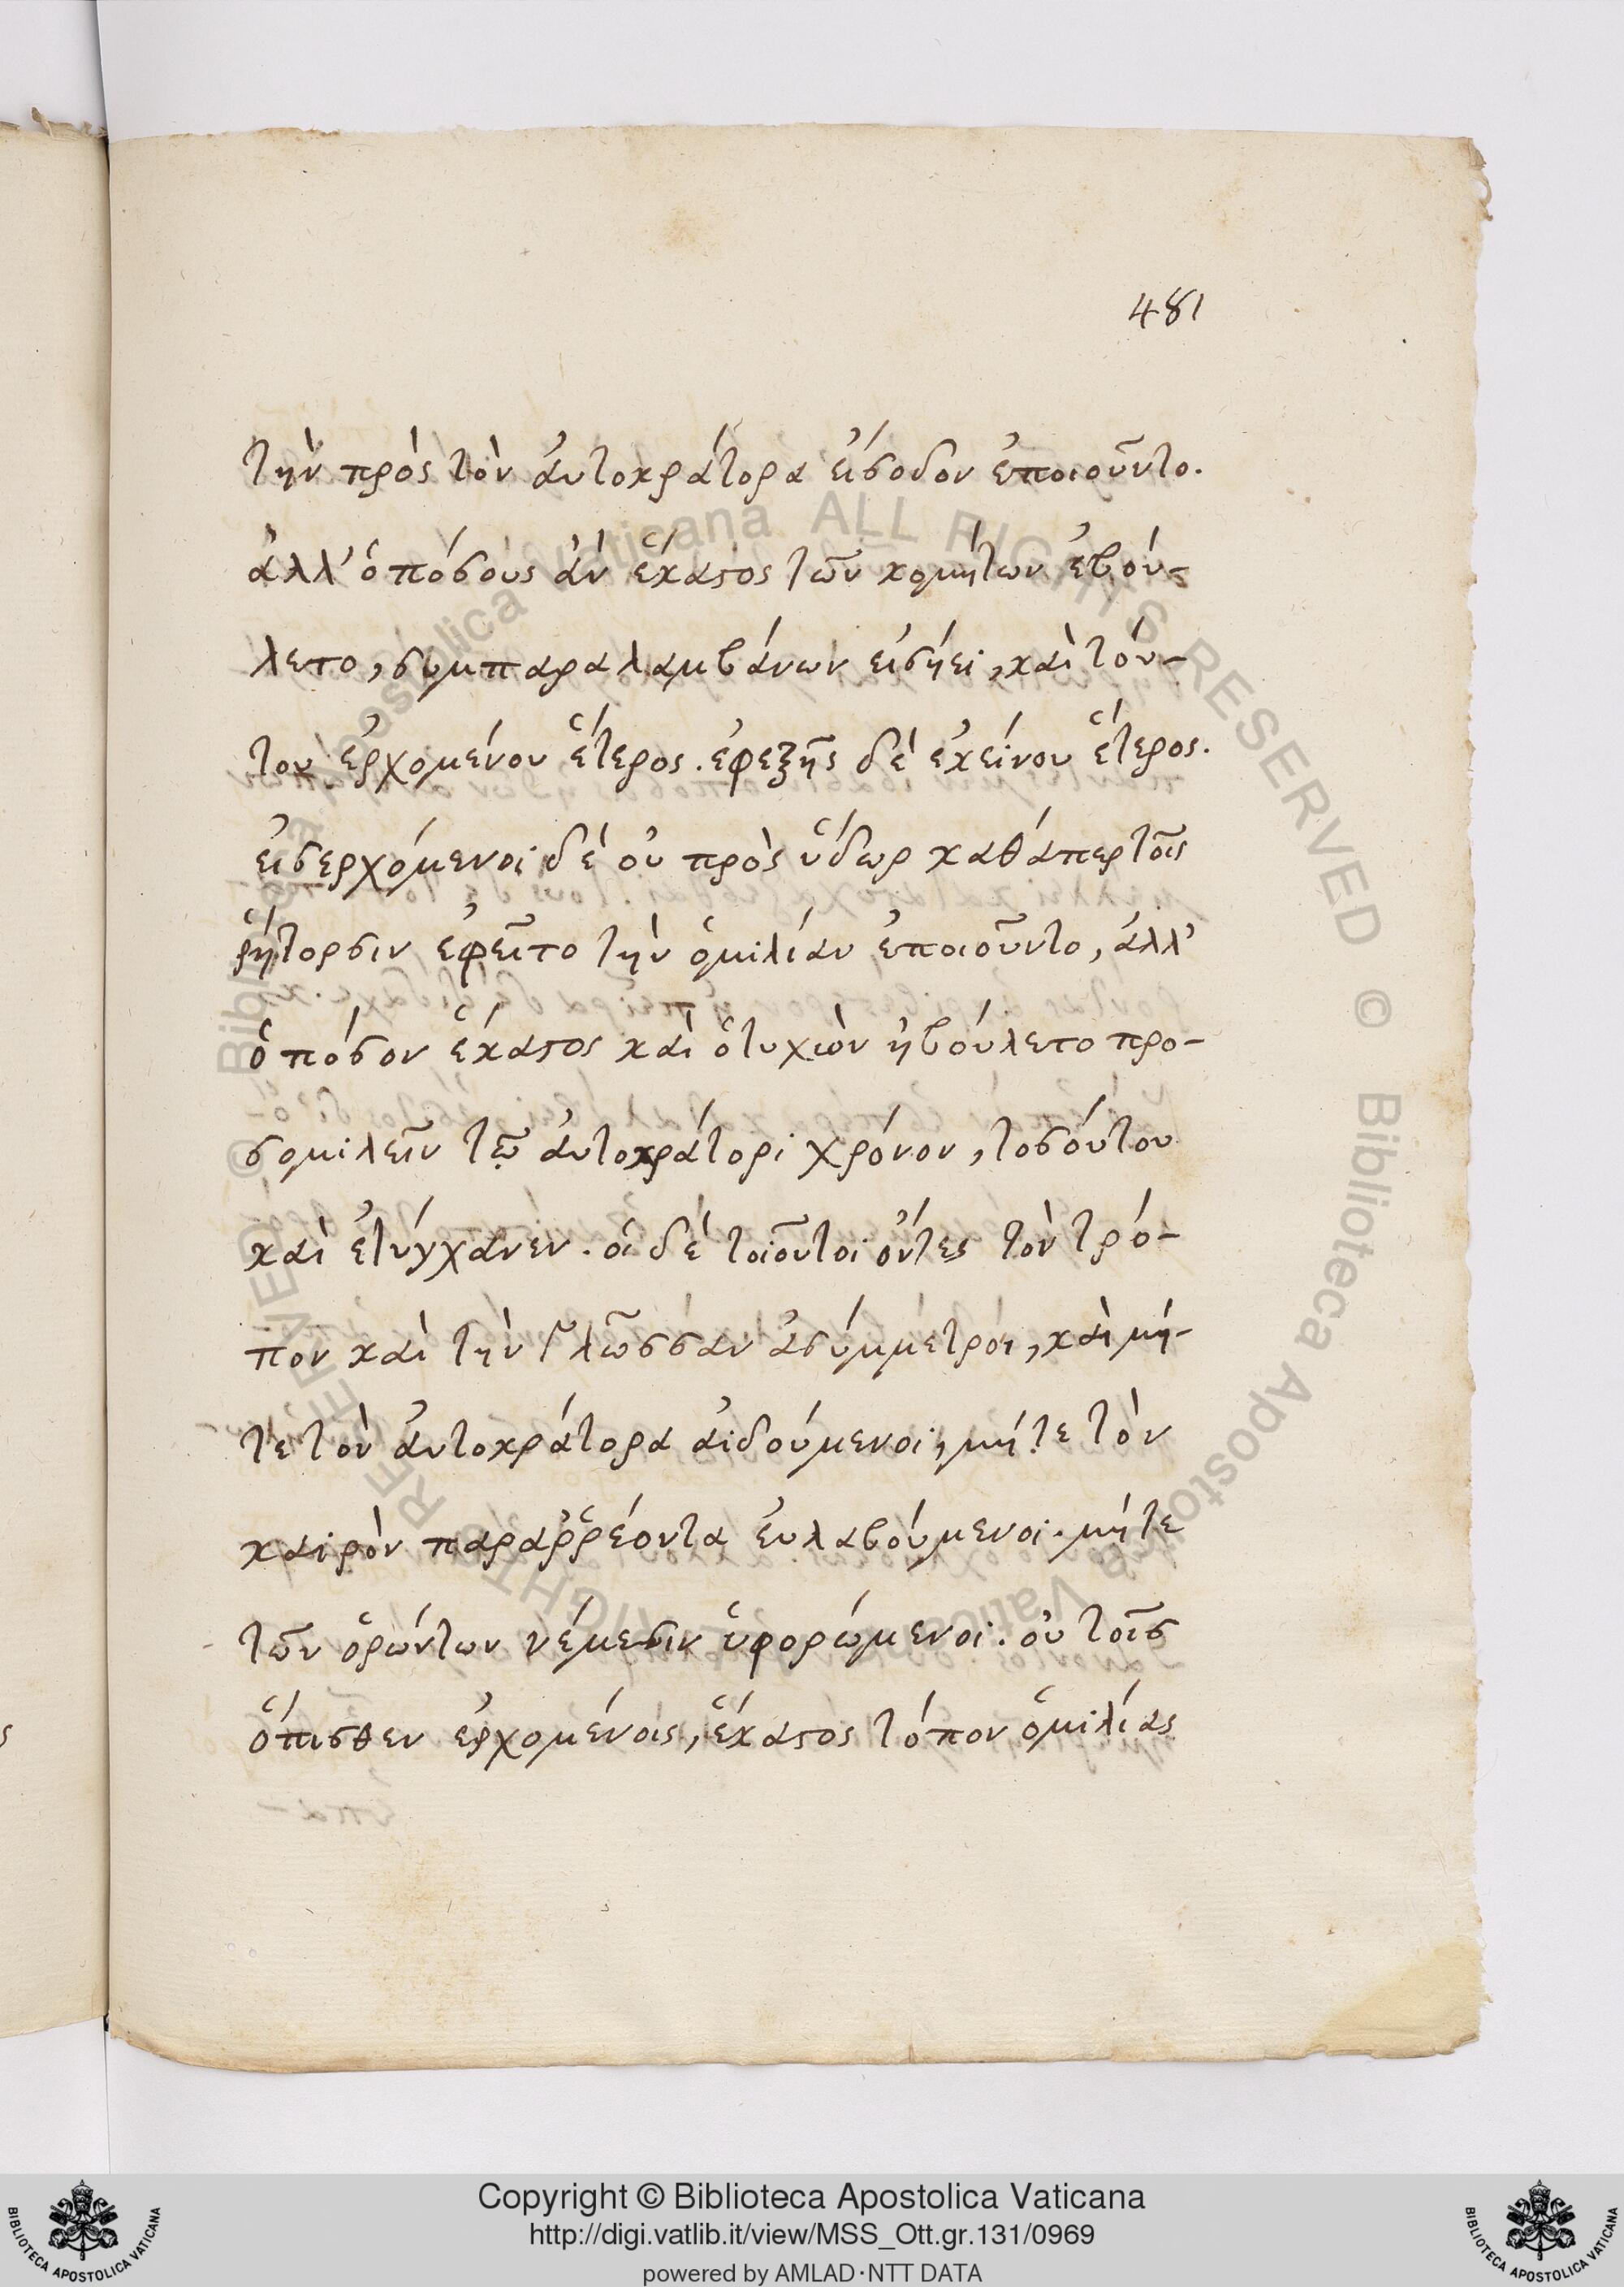 481
τὴν πρὸς τὸν ἀυτοκράτορα εἴσοδον ἐποιοῦντο.
ἀλλ' ὁπόσους ἂν ἕκαστος τῶν κομήτων ἐβού-
λετο, συμπαραλαμβάνων εἰσῄει, καὶ τού-
του ἐρχομένου ἕτερος. ἐφεξῆς δὲ ἐκείνου ἕτερος.
εἰσερχόμενοι δὲ οὐ πρὸς ὕδωρ καθάπερ τοῖς
ῥήτορσιν ἐφεῖτο τὴν ὁμιλίαν ἐποιοῦντο, ἀλλ'
ὁπόσον ἕκαστος καὶ ὁτυχὼν ἠβούλετο προ-
σομιλεῖν τῷ ἀυτοκράτορι χρόνον, τοσούτου
καὶ ἐτύγχανεν. οἱ δὲ τοιοῦτοι ὄντες τὸν τρό-
πον καὶ τὴν γλῶσσαν ἀσύμμετροι, καὶ μή-
τε τὸν ἀυτοκράτορα αἰδούμενοι, μήτε τὸν
καιρὸν παραῤῥέοντα ἐυλαβούμενοι. μήτε
τῶν ὁρώντων νέμεσιν ὑφορώμενοι. οὐ τοῖς
ὅπισθεν ἐρχομένοις, ἕκαστος τόπον ὁμιλίας
© Biblioteca Apostolica Vaticana ALL RIGHTS RESERVED © Biblioteca Apostolica Vaticana ALL RIGHTS RESERVED
Copyright © Biblioteca Apostolica Vaticana
http://digi.vatlib.it/view/MSS_Ott.gr.131/0969
powered by AMLAD·NTT DATA
BIBLIOTECA APOSTOLICA VATICANA
BIBLIOTECA APOSTOLICA VATICANA